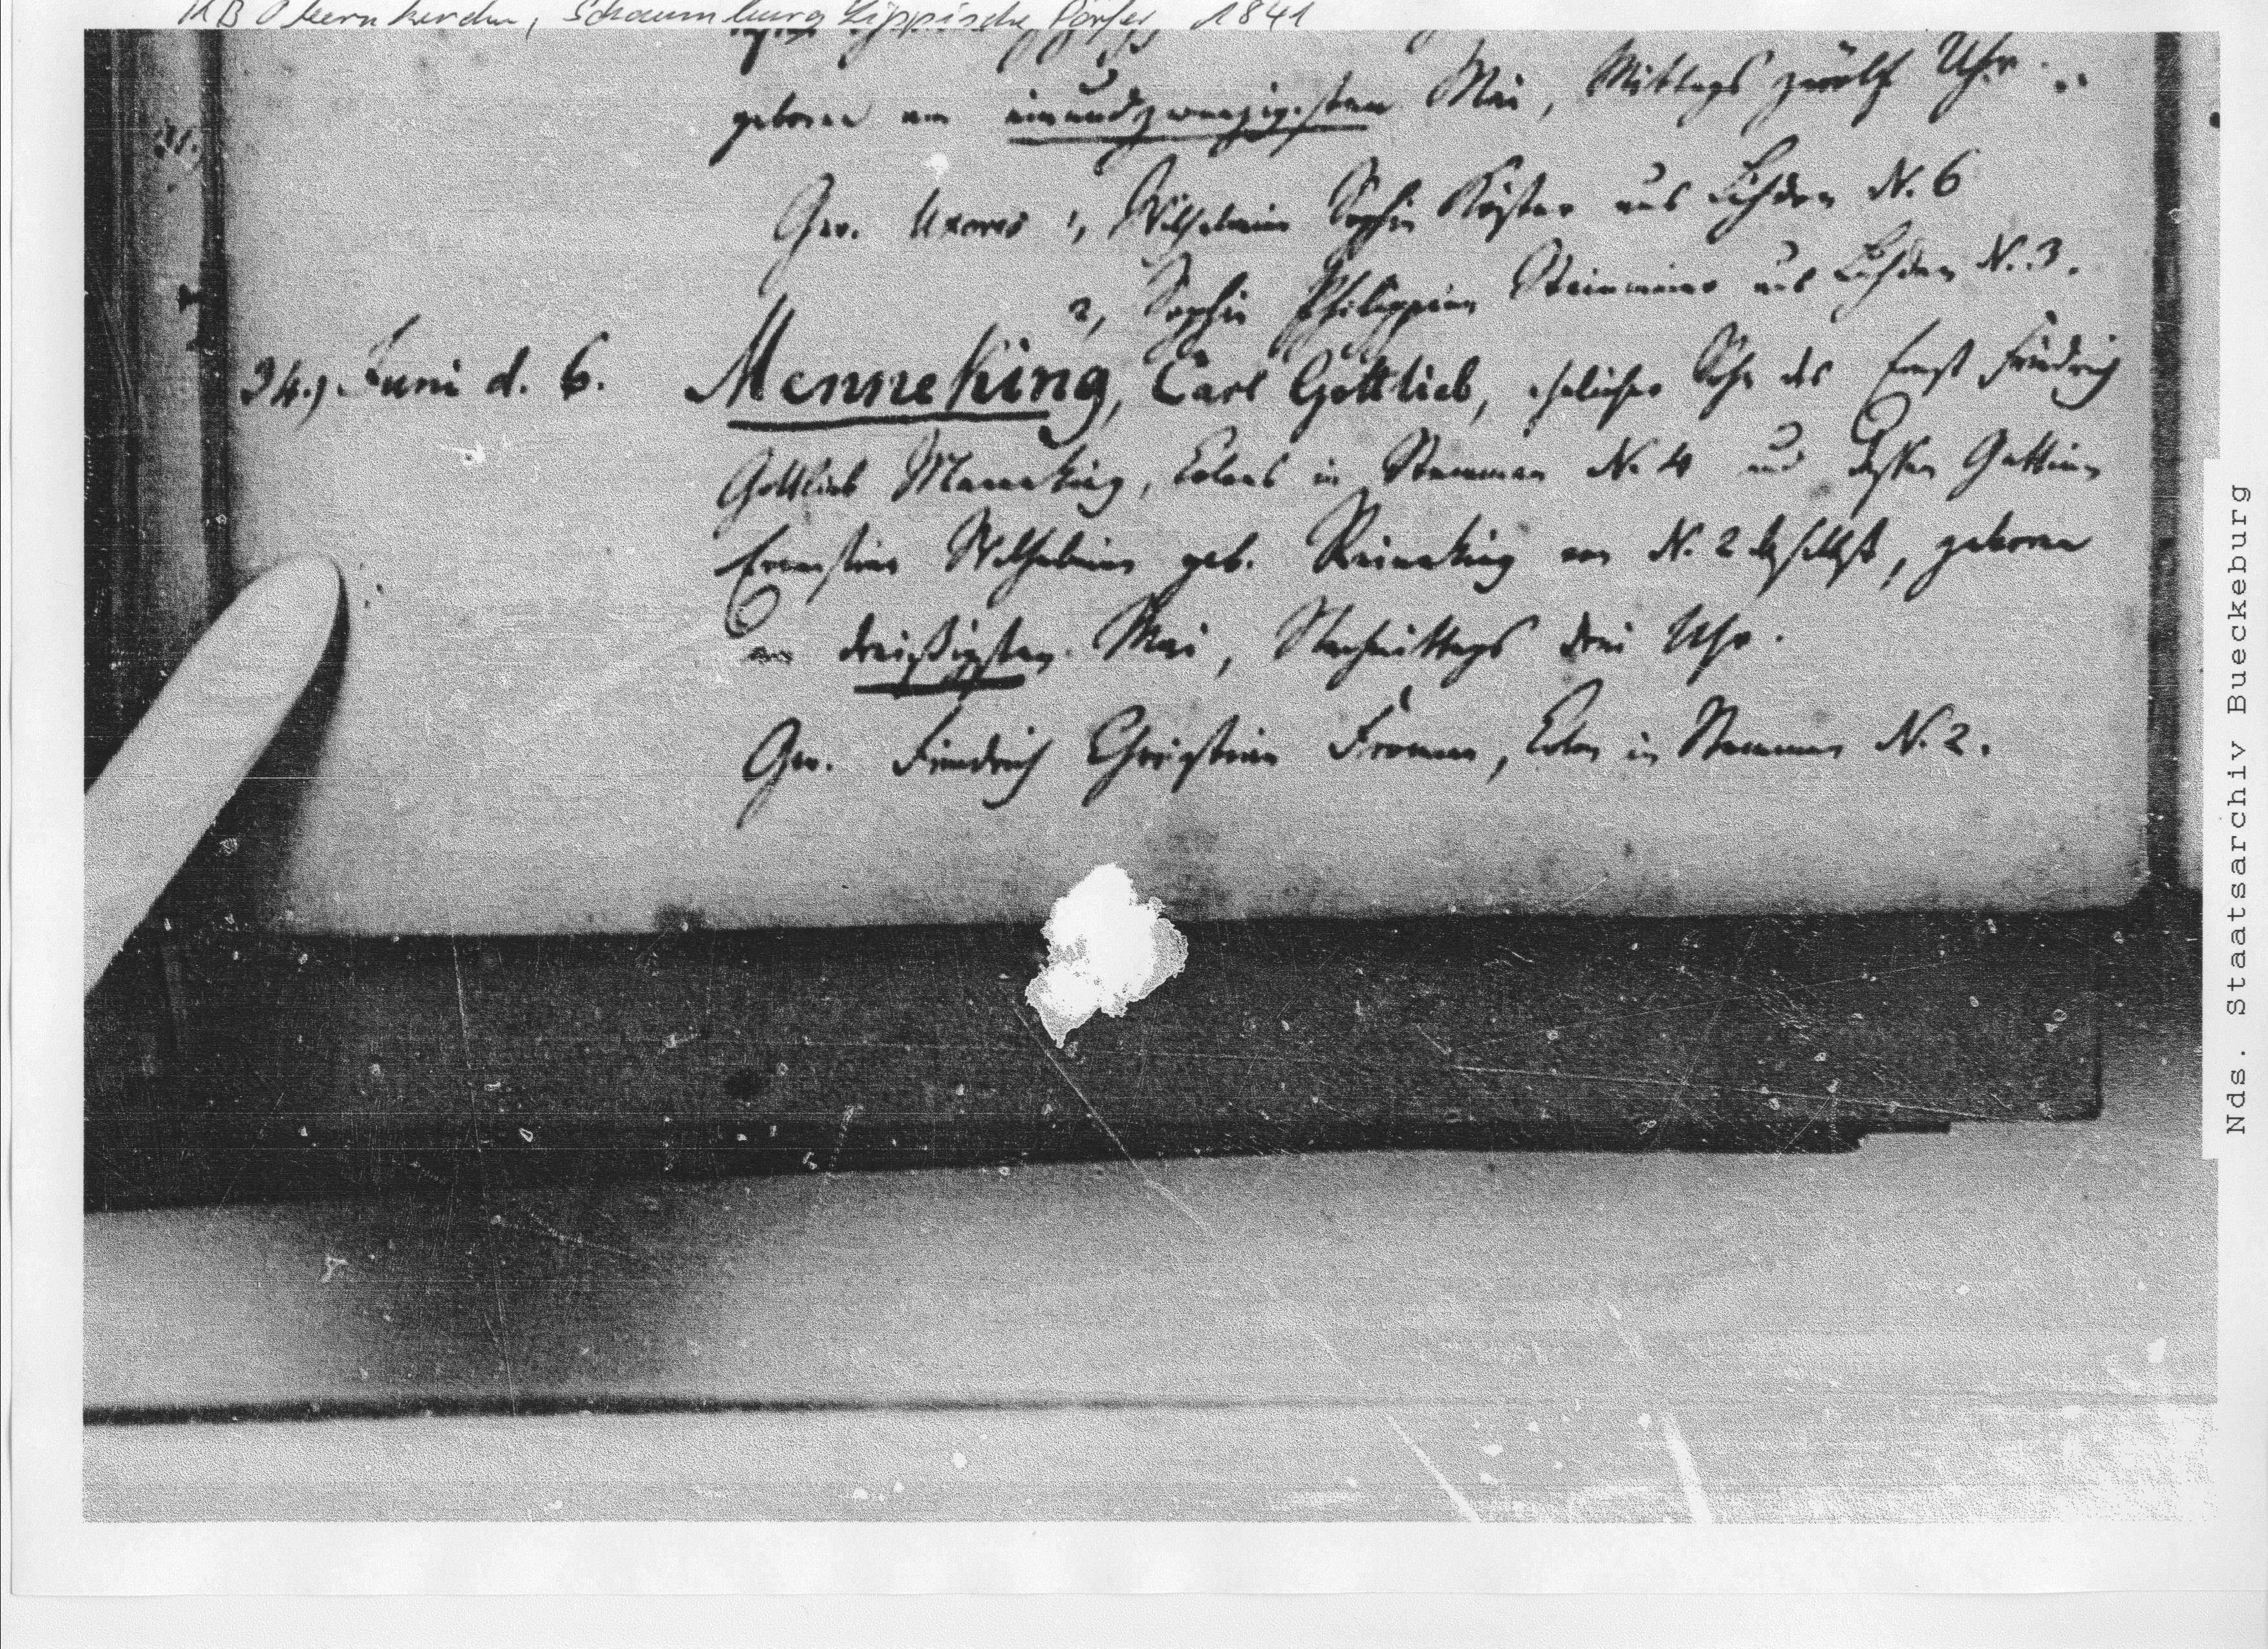 KB Obernkirchen, Schaumburg Lippische Dörfer, 1841
geboren am einundzwanzigsten Mai, Mittags zwölf Uhr.
Gev. Uxores 1, Wilhelmine Sophie Köster aus Luhden N. 6
2, Sophie Philippine Steinmeier aus Luhden N. 3.
34.) Juni d. 6. Menneking, Carl Gottlieb, ehelicher Sohn des Ernst Friedrich
Gottlieb Menneking, Colons in Stemmen N. 4 und dessen Gattinn
Ernestine Wilhelmine geb. Reineking von N. 2 daselbst, geboren
am dreißigsten Mai, Nachmittags drei Uhr.
Gev. Friedrich Christian Fromme, Colon in Stemmen N. 2.
Nds. Staatsarchiv Bueckeburg